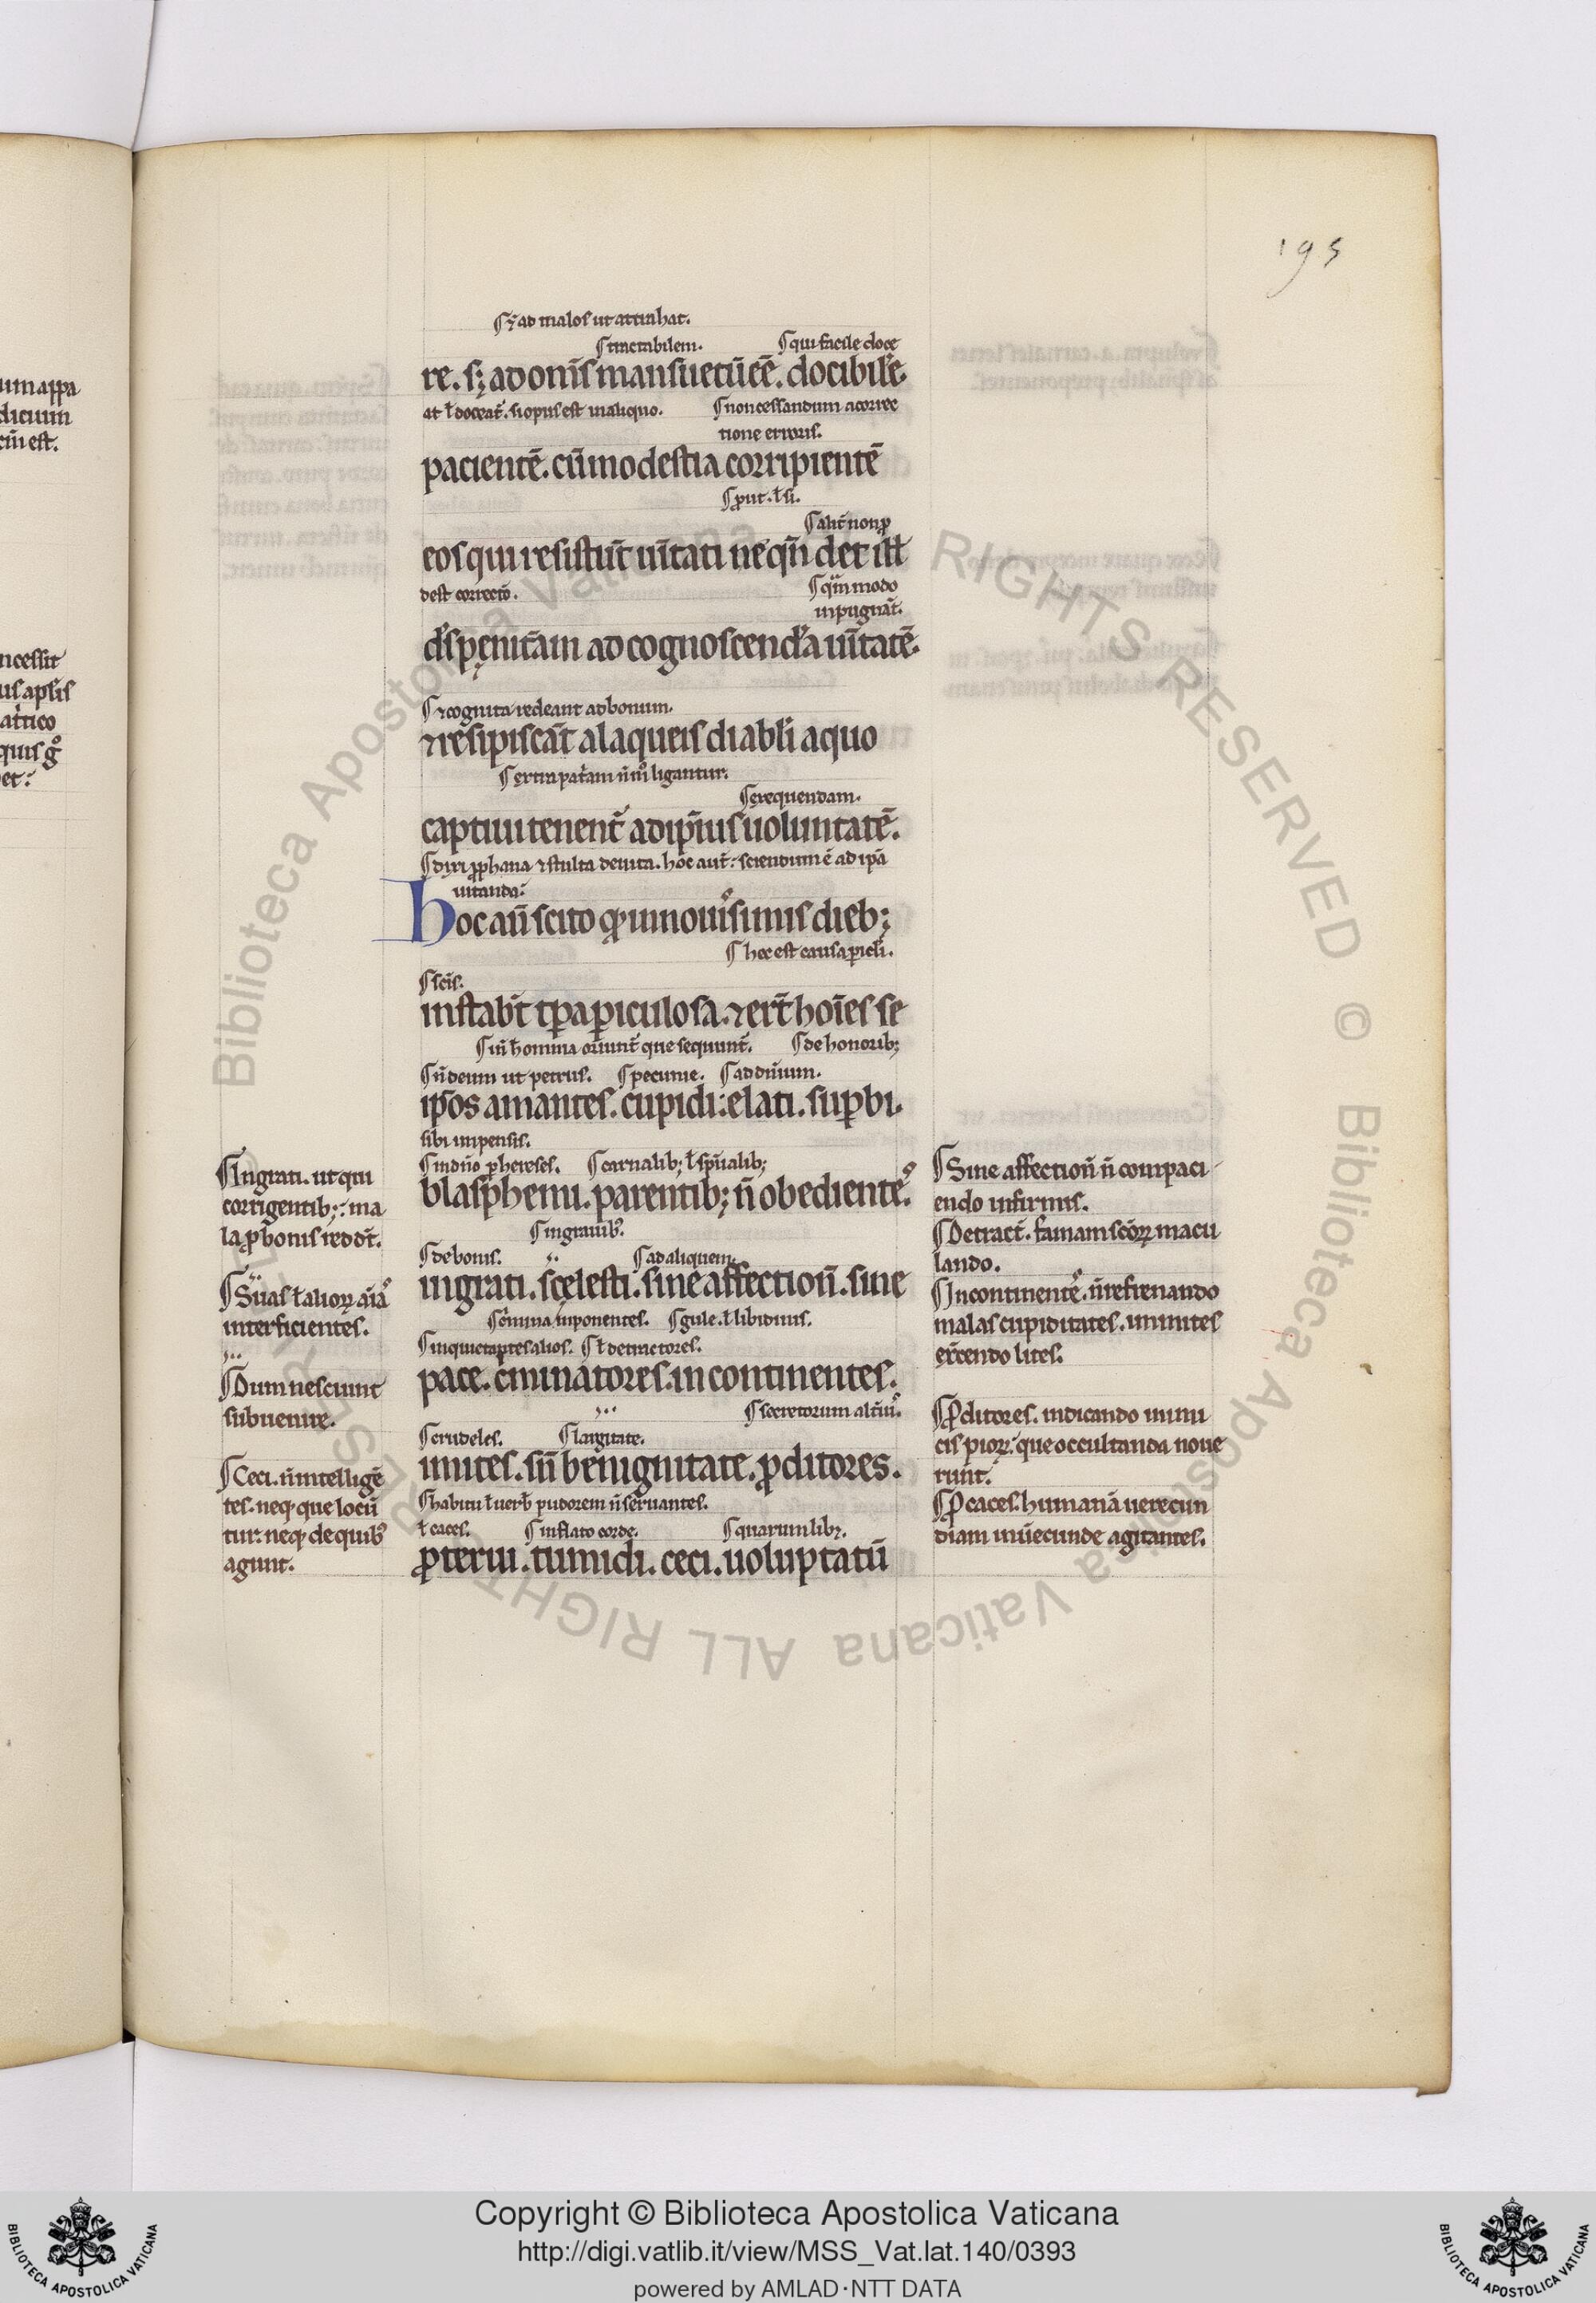 195
¶ &̄ ad malos ut attrahat.
¶ tractabilem. ¶ qui facile doce
re. sꝫ ad om̄s mansuetū eē. docibilē.
at ł doceat̄. si opus est in aliquo. ¶ non cessandum a correc
tione erroris.
pacientē. cū modestia corripientē
¶ ꝓut. ł si.
¶ alit̄ non ꝓ
eos qui resistūt ūitati ne qn̄ det ill
dest correctō. ¶ qm̄ modo
inpugnāt.
d's penitām ad cognoscendā ūitatē.
¶ ⁊ cognita redeant ad bonum.
⁊ resipiscāt a laqueis diabli a quo
¶ extra pat̄am ligantur.
¶ exequendam.
captiui tenent̄ ad ip̄ius uoluntatē.
¶ dixi ꝓphana ⁊ stulta deuita. hoc aut̄: sciendum ē ad ip̄a
uitanda:
Hoc aū scito ꝙ in nouissimis dieb;
¶ hec est causa ꝑicli.
¶ scīs.
instabt̄ tꝑa ꝑiculosa. ⁊ ert̄ hoīes se
omnia oriunt̄ que sequunt̄. ¶ de honorib;
¶ n̄ deum ut petrus. ¶ pecunie. ¶ ad dn̄ium.
ip̄os amantes. cupidi: elati. suꝑbi.
sibi impensis.
¶ in dn̄o ꝑ hereses. ¶ carnalib; ł sp̄ualib;
blasphemi. parentib; n̄ obedientes.
¶ in grauib;
¶ de bonis. ¶ ad aliquem.
ingrati. scelesti. sine affectioñ. sine
¶ crimina inponentes. ¶ gule. ł libidinis.
¶ inquietantes alios. ¶ ł detractores.
pace. cminatores. incontinentes.
¶ secretorum altiū.
¶ crudeles. ¶ largitate.
inites. sn̄ benignitate. ꝓditores.
¶ habitu ł uerb pudorem n̄ seruantes.
ł caces. ¶ inflato corde. ¶ quarumlibꝫ.
ꝓterui. tumidi. ceci. uoluptatū
¶ Ingrati. ut qui
corrigentib;: ma
la ꝓ bonis reddt̄.
¶ Suas ł alioꝝ aīas
interficientes.
¶ Dum nesciunt
subuenire.
¶ Ceci. n̄ intelligē
tes. neqꝫ que locū
tur: neqꝫ de quibꝰ
agunt.
¶ Sine affectioñ n̄ compaci
endo infirmis.
¶ Detract̄. famam scōꝝ macu
lando.
¶ Incontinentes. n̄ refrenando
malas cupiditates. inmites
ex̄cendo lites.
¶ Ꝓditores. indicando inimi
cis pioꝝ: que occultanda noue
runt.
¶ Ꝓcaces. humanā uerecun
diam inūecunde agitantes.
um appa
dicium
est.
ncessit
us apsis
quis
et:
Biblioteca Apostolica Vaticana ALL RIGHTS RESERVED © Biblioteca Apostolica Vaticana ALL RIGHTS RESERVED ©
Copyright © Biblioteca Apostolica Vaticana
http://digi.vatlib.it/view/MSS_Vat.lat.140/0393
powered by AMLAD·NTT DATA
BIBLIOTECA APOSTOLICA VATICANA
BIBLIOTECA APOSTOLICA VATICANA